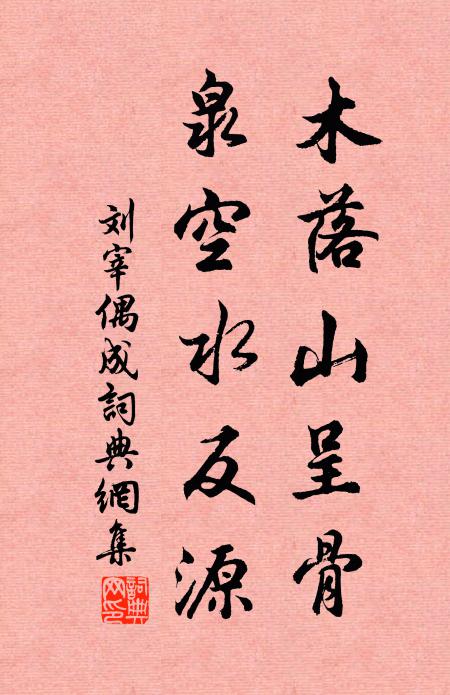 木落山呈骨
泉空水反源
刘宰偶成詞典網集
詞典網印